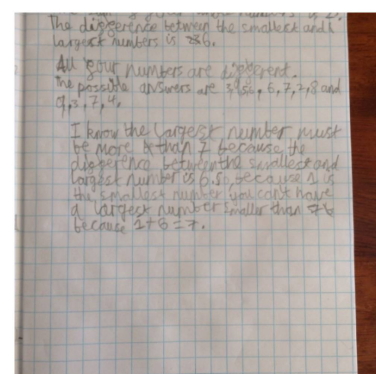 numbers is 2.
The difference between the smallest and
largest numbers is 6.
All four numbers are different.
The possible answers are 6, 7, 2, 8 and
9, 3, 7, 4,
I know the largest number must
be more than 7 because the
difference between the smallest and
largest number is 6. So, because 1 is
the smallest number you can't have
a largest number smaller than 7
because 1+6=7.